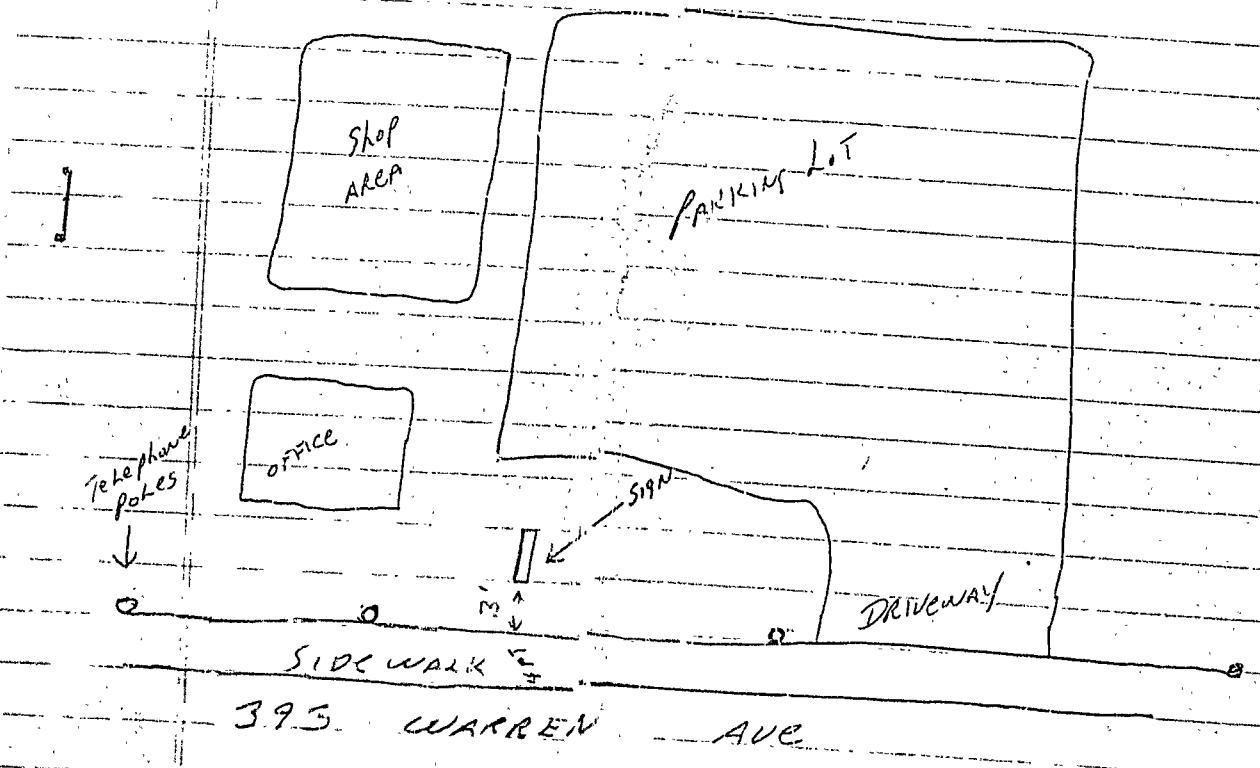 Shop
AREA
PARKING LOT
Telephone
Poles
OFFICE
SIGN
3'
DRIVEWAY
SIDEWALK
393 WARREN AVE